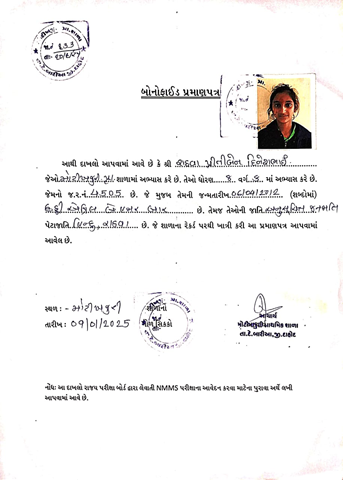 બોનોફાઈડ પ્રમાણપત્ર
આથી દાખલો આપવામાં આવે છે કે શ્રી કટારા પ્રીતીબેન દિનેશભાઈ
જેઓ મોટીઝરી પ્રા. શાળામાં અભ્યાસ કરે છે. તેઓ ધોરણ 8 વર્ગ માં અભ્યાસ કરે છે.
જેમનો જ.ર.નં. 4505 છે. જે મુજબ તેમની જન્મતારીખ 06/04/2012 (શબ્દોમાં)
છઠ્ઠી એપ્રિલ બે હજાર બાર છે. તેમજ તેઓની જાતિ અનુસૂચિત જનજાતિ
પેટાજાતિ હિન્દુ, છે. જે શાળાના રેકર્ડ પરથી ખાત્રી કરી આ પ્રમાણપત્ર આપવામાં
આવેલ છે.
સ્થળ :-
શાળાનો
તારીખ : 09/01/2025
ગોળ સિક્કો
આચાર્ય
પ્રાથમિક શાળા
તા.દે.બારીઆ.જી.દાહોદ
નોંધઃ આ દાખલો રાજ્ય પરીક્ષા બોર્ડ દ્વારા લેવાતી NMMS પરીક્ષાના આવેદન કરવા માટેના પુરાવા અર્થે લખી
આપવામાં આવે છે.